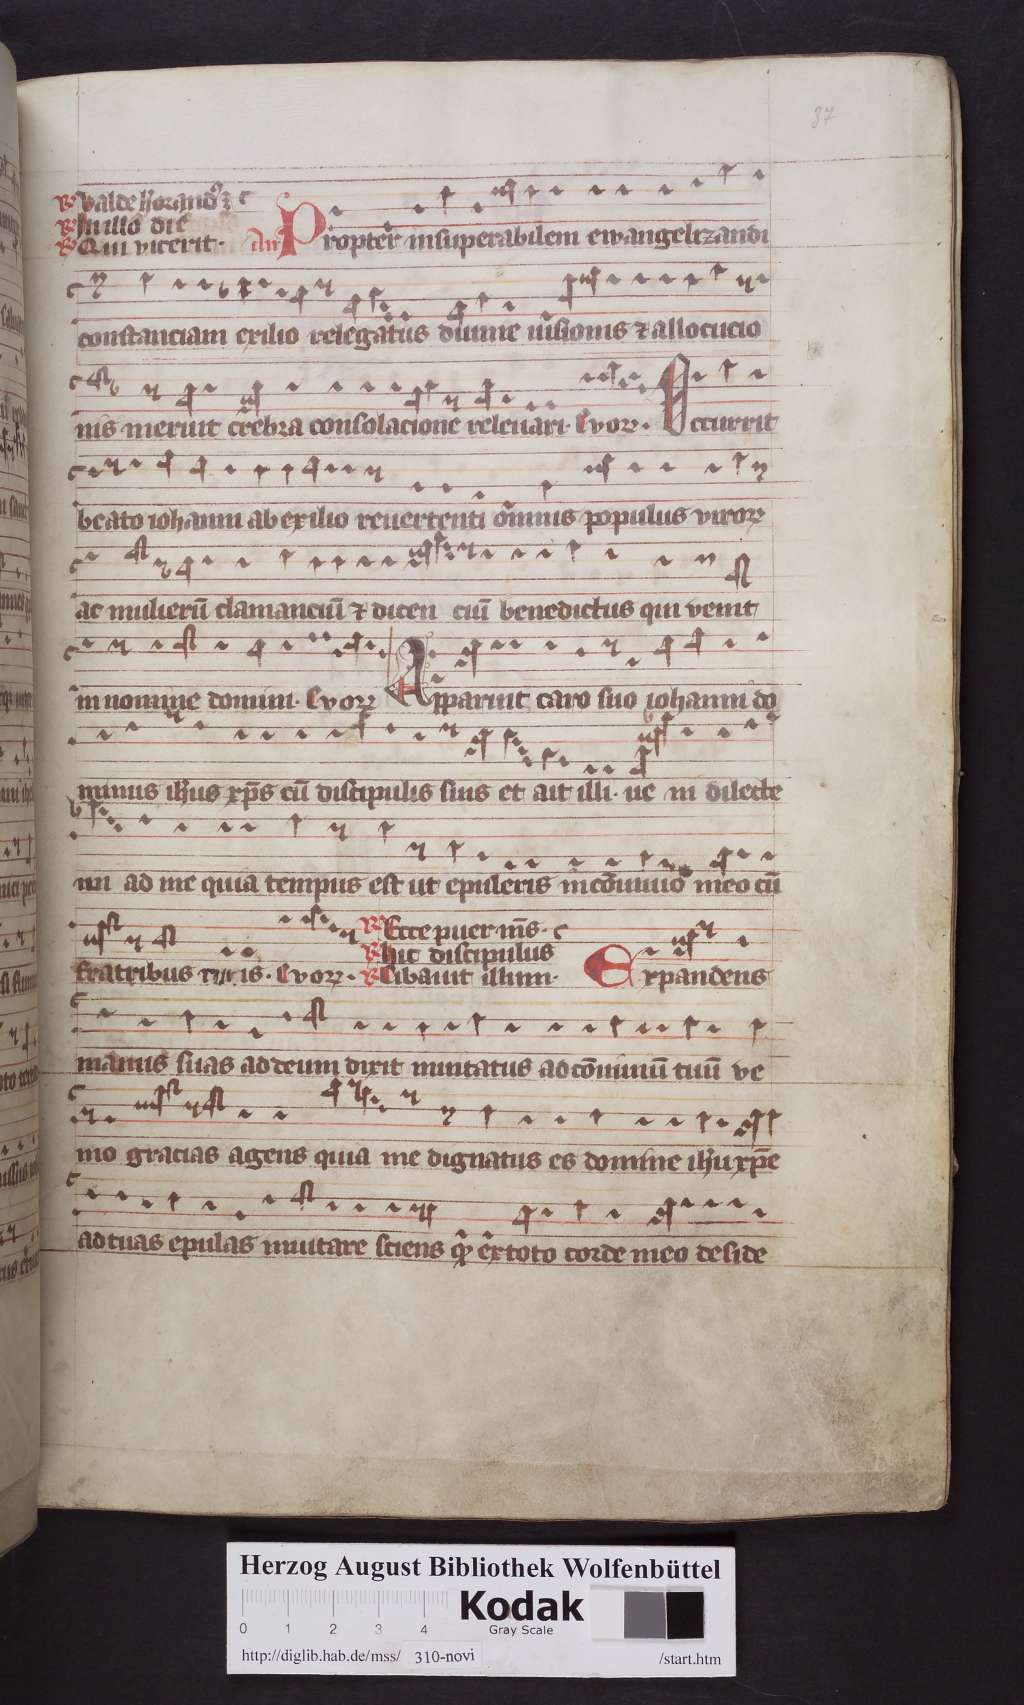 37
R Valde honorand9 ē
R In illo die
R Qui vicerit. An Propter insuperabilem ewangelizandi
constanciam exilio relegatus diuine uisionis ⁊ allocucio
nis meruit crebra consolacione releuari. Evor. Occurrit
beato iohanni ab exilio reuertenti omnis populus viror
ac mulierū clamanciū ⁊ dicen ciū benedictus qui venit
in nomine domini. Evor Apparuit caro suo iohanni do
minus ihus xp̄s cū discipulis suis et ait illi. ue ni dilecte
mi ad me quia tempus est ut epuleris in cōuiuio meo cū
R Ecce puer m̄s.
R hic discipulus
fratribus tuis. Evor. R Cibauit illum. Expandens
manus suas ad deum dixit inuitatus ad cōuiuiū tuū ve
nio gracias agens quia me dignatus es domine ihu xp̄e
ad tuas epulas inuitare sciens qr̄ ex toto corde meo deside
Herzog August Bibliothek Wolfenbüttel
0 1 2 3 4 Kodak
Gray Scale
http://diglib.hab.de/mss/ 310-novi /start.htm